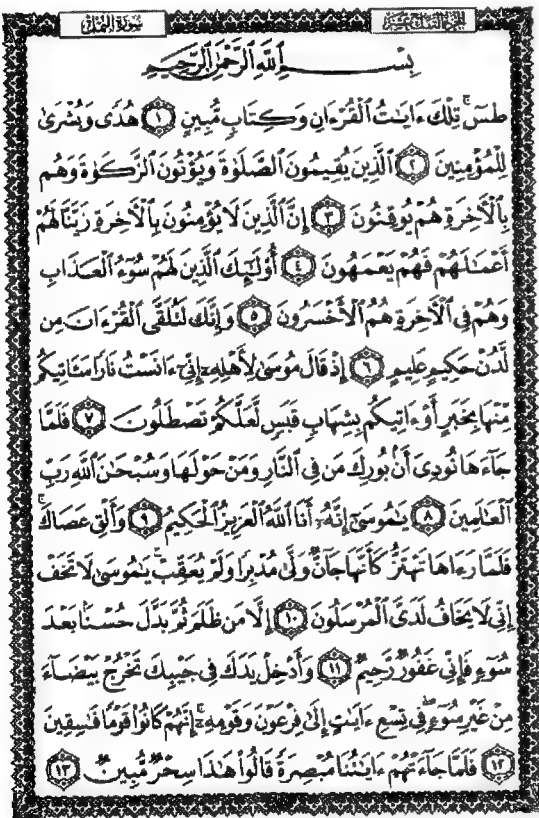 الجزء التاسع عشر
سورة النمل
بِسْمِ ٱللَّهِ ٱلرَّحْمَٰنِ ٱلرَّحِيمِ
طسٓ ۚ تِلْكَ ءَايَٰتُ ٱلْقُرْءَانِ وَكِتَابٍ مُّبِينٍ ١ هُدًى وَبُشْرَىٰ
لِلْمُؤْمِنِينَ ٢ ٱلَّذِينَ يُقِيمُونَ ٱلصَّلَوٰةَ وَيُؤْتُونَ ٱلزَّكَوٰةَ وَهُم
بِٱلْأَخِرَةِ هُمْ يُوقِنُونَ ٣ إِنَّ ٱلَّذِينَ لَا يُؤْمِنُونَ بِٱلْأَخِرَةِ زَيَّنَّا لَهُمْ
أَعْمَٰلَهُمْ فَهُمْ يَعْمَهُونَ ٤ أُو۟لَٰٓئِكَ ٱلَّذِينَ لَهُمْ سُوٓءُ ٱلْعَذَابِ
وَهُمْ فِى ٱلْأَخِرَةِ هُمُ ٱلْأَخْسَرُونَ ٥ وَإِنَّكَ لَتُلَقَّى ٱلْقُرْءَانَ مِن
لَّدُنْ حَكِيمٍ عَلِيمٍ ٦ إِذْ قَالَ مُوسَىٰ لِأَهْلِهِۦٓ إِنِّىٓ ءَانَسْتُ نَارًا سَـَٔاتِيكُم
مِّنْهَا بِخَبَرٍ أَوْ ءَاتِيكُم بِشِهَابٍ قَبَسٍ لَّعَلَّكُمْ تَصْطَلُونَ ٧ فَلَمَّا
جَآءَهَا نُودِىَ أَنۢ بُورِكَ مَن فِى ٱلنَّارِ وَمَنْ حَوْلَهَا وَسُبْحَٰنَ ٱللَّهِ رَبِّ
ٱلْعَٰلَمِينَ ٨ يَٰمُوسَىٰٓ إِنَّهُۥٓ أَنَا ٱللَّهُ ٱلْعَزِيزُ ٱلْحَكِيمُ ٩ وَأَلْقِ عَصَاكَ ۚ
فَلَمَّا رَءَاهَا تَهْتَزُّ كَأَنَّهَا جَآنٌّ وَلَّىٰ مُدْبِرًا وَلَمْ يُعَقِّبْ ۚ يَٰمُوسَىٰ لَا تَخَفْ
إِنِّى لَا يَخَافُ لَدَىَّ ٱلْمُرْسَلُونَ ١٠ إِلَّا مَن ظَلَمَ ثُمَّ بَدَّلَ حُسْنًۢا بَعْدَ
سُوٓءٍ فَإِنِّى غَفُورٌ رَّحِيمٌ ١١ وَأَدْخِلْ يَدَكَ فِى جَيْبِكَ تَخْرُجْ بَيْضَآءَ
مِنْ غَيْرِ سُوٓءٍ ۖ فِى تِسْعِ ءَايَٰتٍ إِلَىٰ فِرْعَوْنَ وَقَوْمِهِۦٓ ۚ إِنَّهُمْ كَانُوا۟ قَوْمًا فَٰسِقِينَ
١٢ فَلَمَّا جَآءَتْهُمْ ءَايَٰتُنَا مُبْصِرَةً قَالُوا۟ هَٰذَا سِحْرٌ مُّبِينٌ ١٣